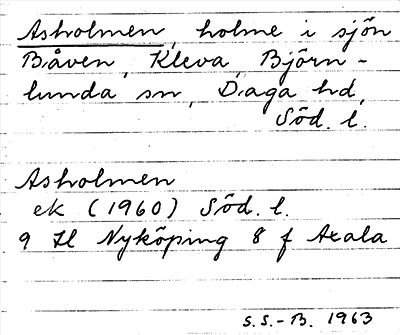 Asholmen, holme i sjön
Båven, Kleva, Björn-
lunda sn, Daga hd,
Söd. l.
Asholmen
ek (1960) Söd. l.
9 H Nyköping 8 f Axala
S.S.-B. 1963